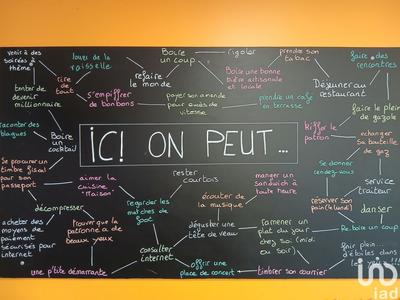 venir à des
soirées à
thème
laver de la
vaisselle
Boire
un coup
rigoler
prendre son
tabac
faire des
rencontres
rire
de tout
refaire
le monde
Boire une bonne
bière artisanale
et locale
Déjeuner au
restaurant
tenter de
devenir
millionnaire
s'empiffrer
de bonbons
payer son amende
pour excès de
vitesse
prendre un café
en terrasse
faire le plein
de gazole
raconter des
blagues
Boire
un
cocktail
kiffer le
patron
echanger
sa bouteille
de gaz
iCi ON PEUT...
Se procurer un
timbre fiscal
pour son
passeport
aimer la
cuisine
"maison"
rester
courtois
manger un
sandwich à
toute heure
Se donner
rendez-vous
service
traiteur
décompresser
regarder les
matches de
foot
écouter de
la musique
réserver son
pain (le lundi)
danser
acheter des
moyens de
paiement
sécurisés pour
internet
Trouver que la
patronne a de
beaux yeux
déguster une
tête de veau
ramener un
plat du jour
chez soi (midi
ou soir)
Re boire un coup
consulter
internet
finir plein
d'étoiles dans
une p'tite démarrante
offrir une
place de concert
timbrer son courrier
iad